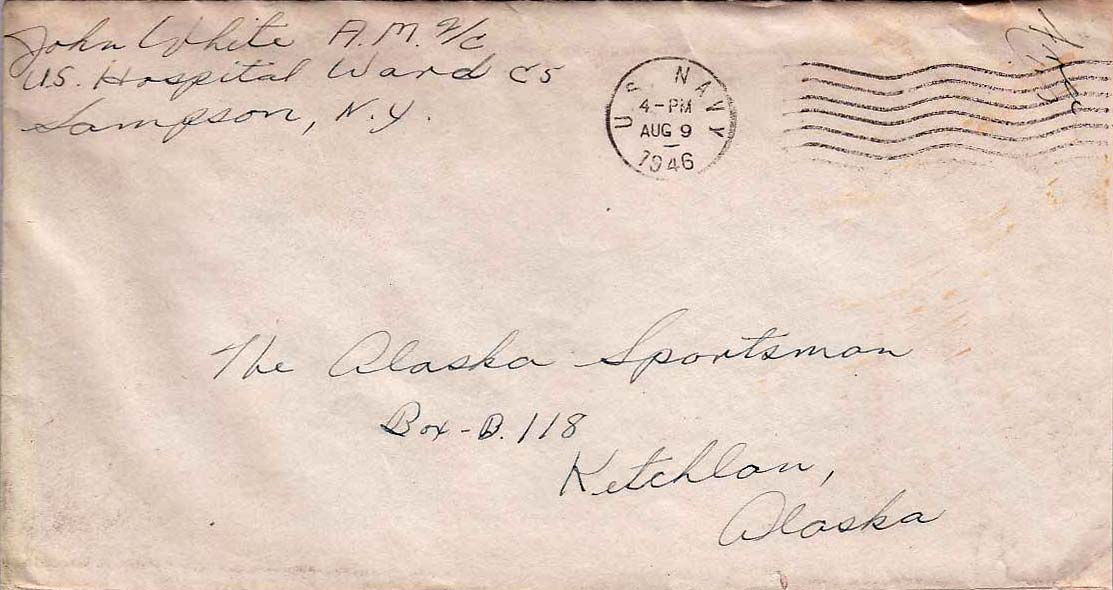 John White A.M. 2/c
U.S. Hospital Ward C5
Sampson, N.Y.
U.S. NAVY
4-PM
AUG 9
1946
The Alaska Sportsman
Box-B. 118
Ketchlan,
Alaska